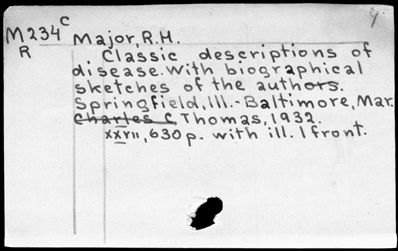 M234c Major, R.H.
R
Classic descriptions of
disease. With biographical
sketches of the authors.
Springfield, Ill. - Baltimore, Mar.
Charles C. Thomas, 1932.
xxvii, 630 p. with ill. 1 front.